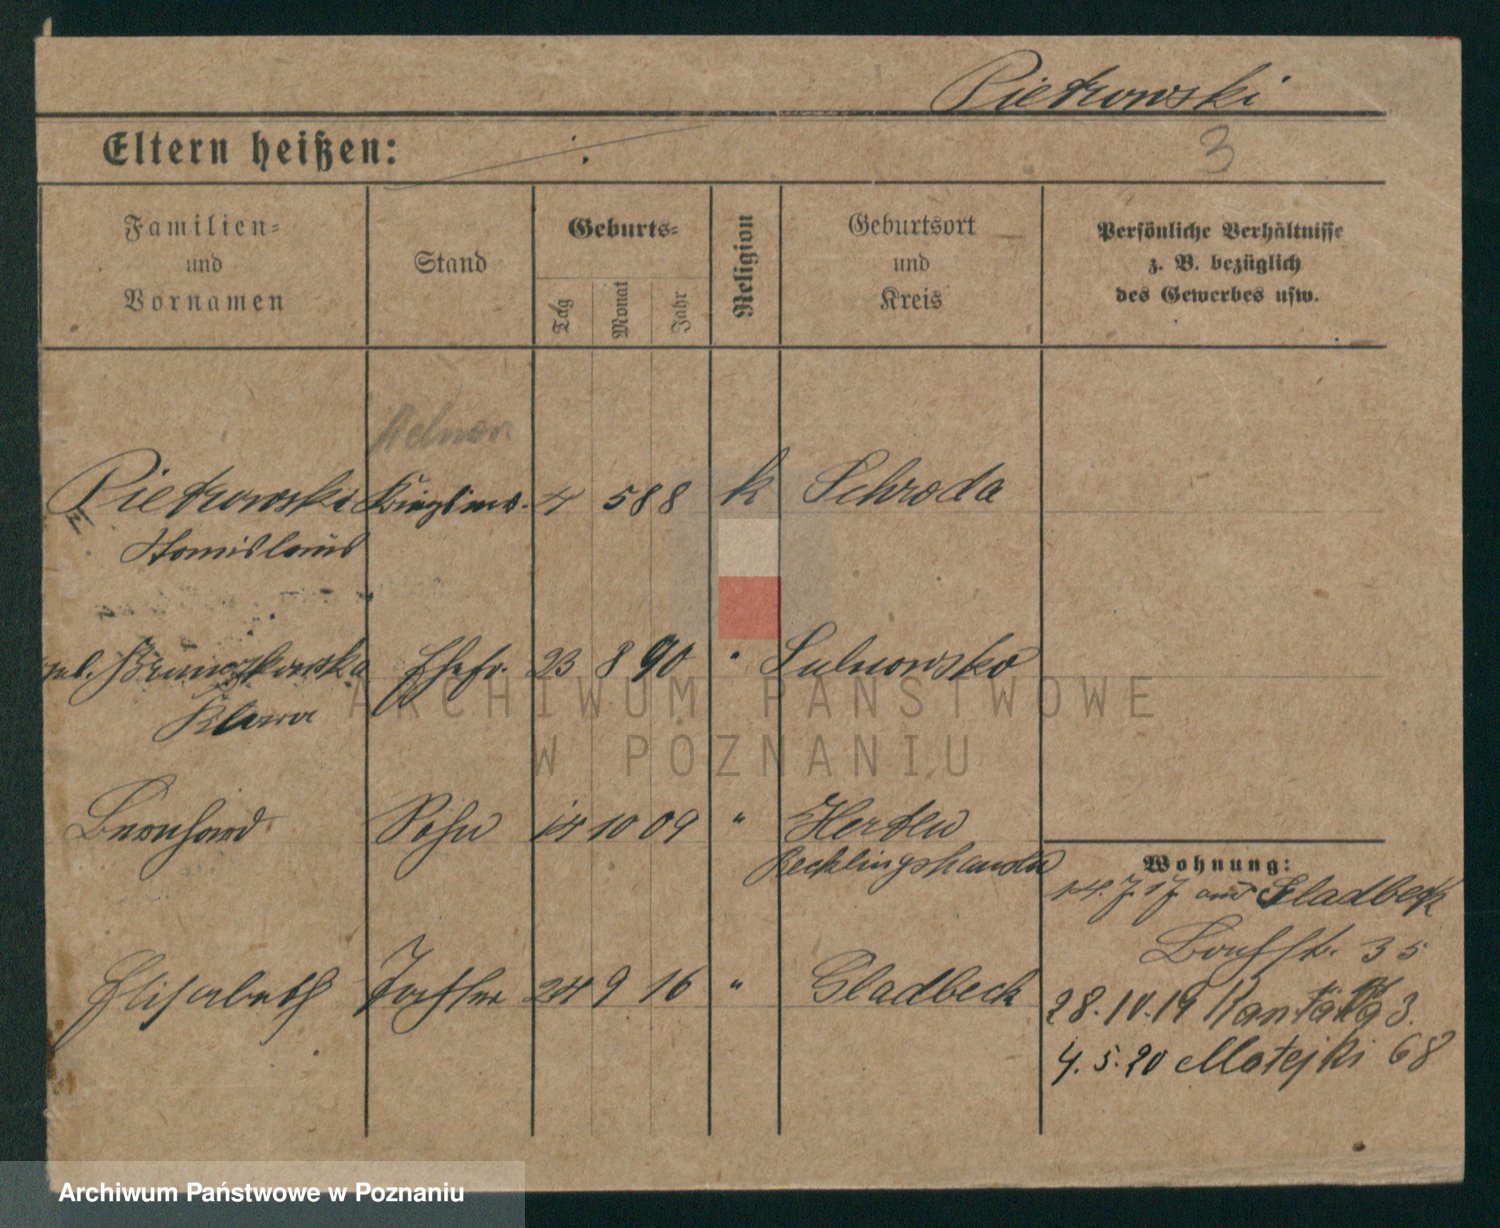 Pietrowski
Eltern heißen: ./.
3
Familien-
und
Vornamen
Stand
Geburts-
Tag
Monat
Jahr
Religion
Geburtsort
und
Kreis
Persönliche Verhältnisse
z. B. bezüglich
des Gewerbes usw.
Kelner
Pietrowski Kriegsinv. 4 5 88 k Schroda
Stanislaus
geb. Ehefr. 23 8 90 " Sulnowsko
Klara
Bernhard Sohn 14 10 09 " Herten
Recklingshausen
Wohnung:
14. 7. 17 aus Gladbeck
35
Elisabeth Tochter 24 9 16 " Gladbeck
28. 10. 19 Kantaka 3.
4. 5. 20 Matejki 68
ARCHIWUM PAŃSTWOWE
W POZNANIU
Archiwum Państwowe w Poznaniu